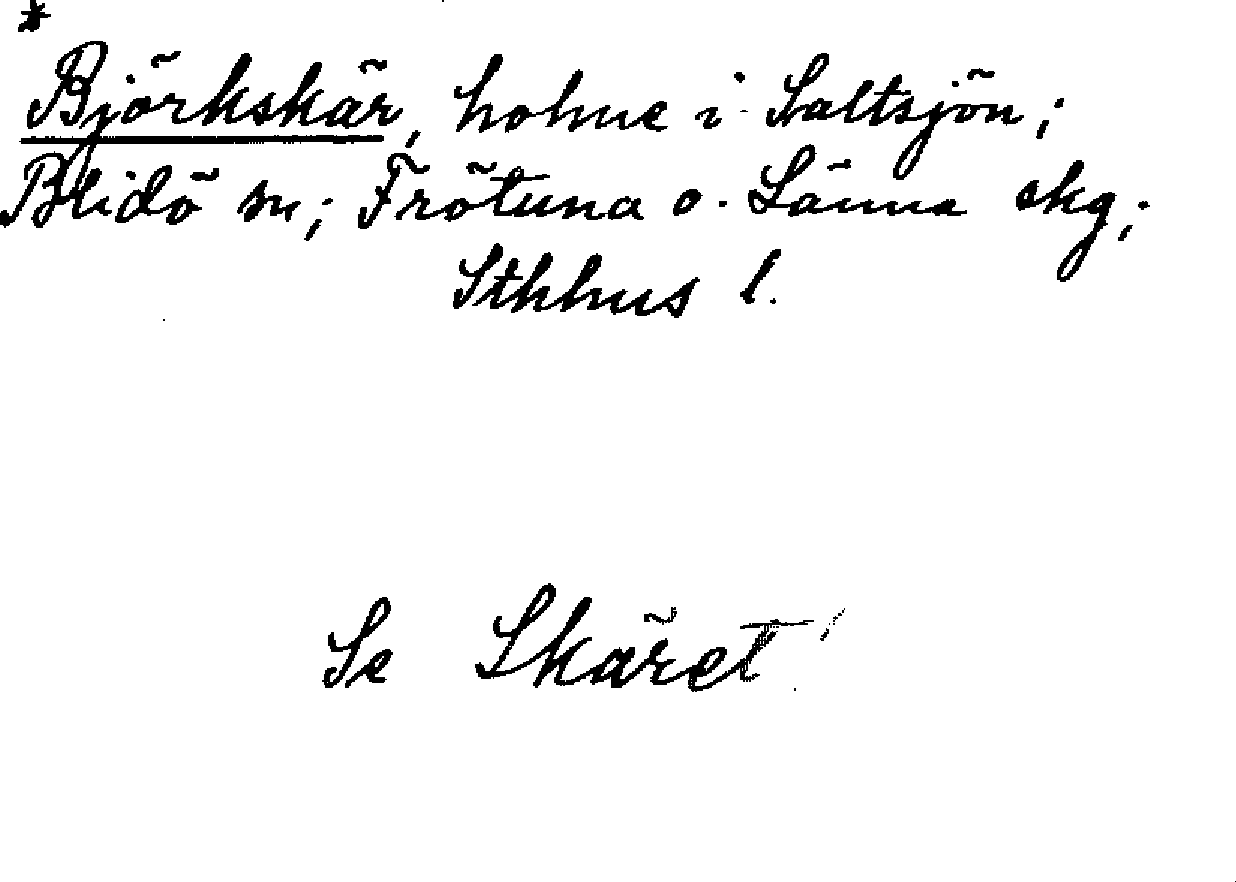 *
Björkskär, holme i Saltsjön;
Blidö sn; Frötuna o. Länna skg;
Sthlms l.
Se Skäret